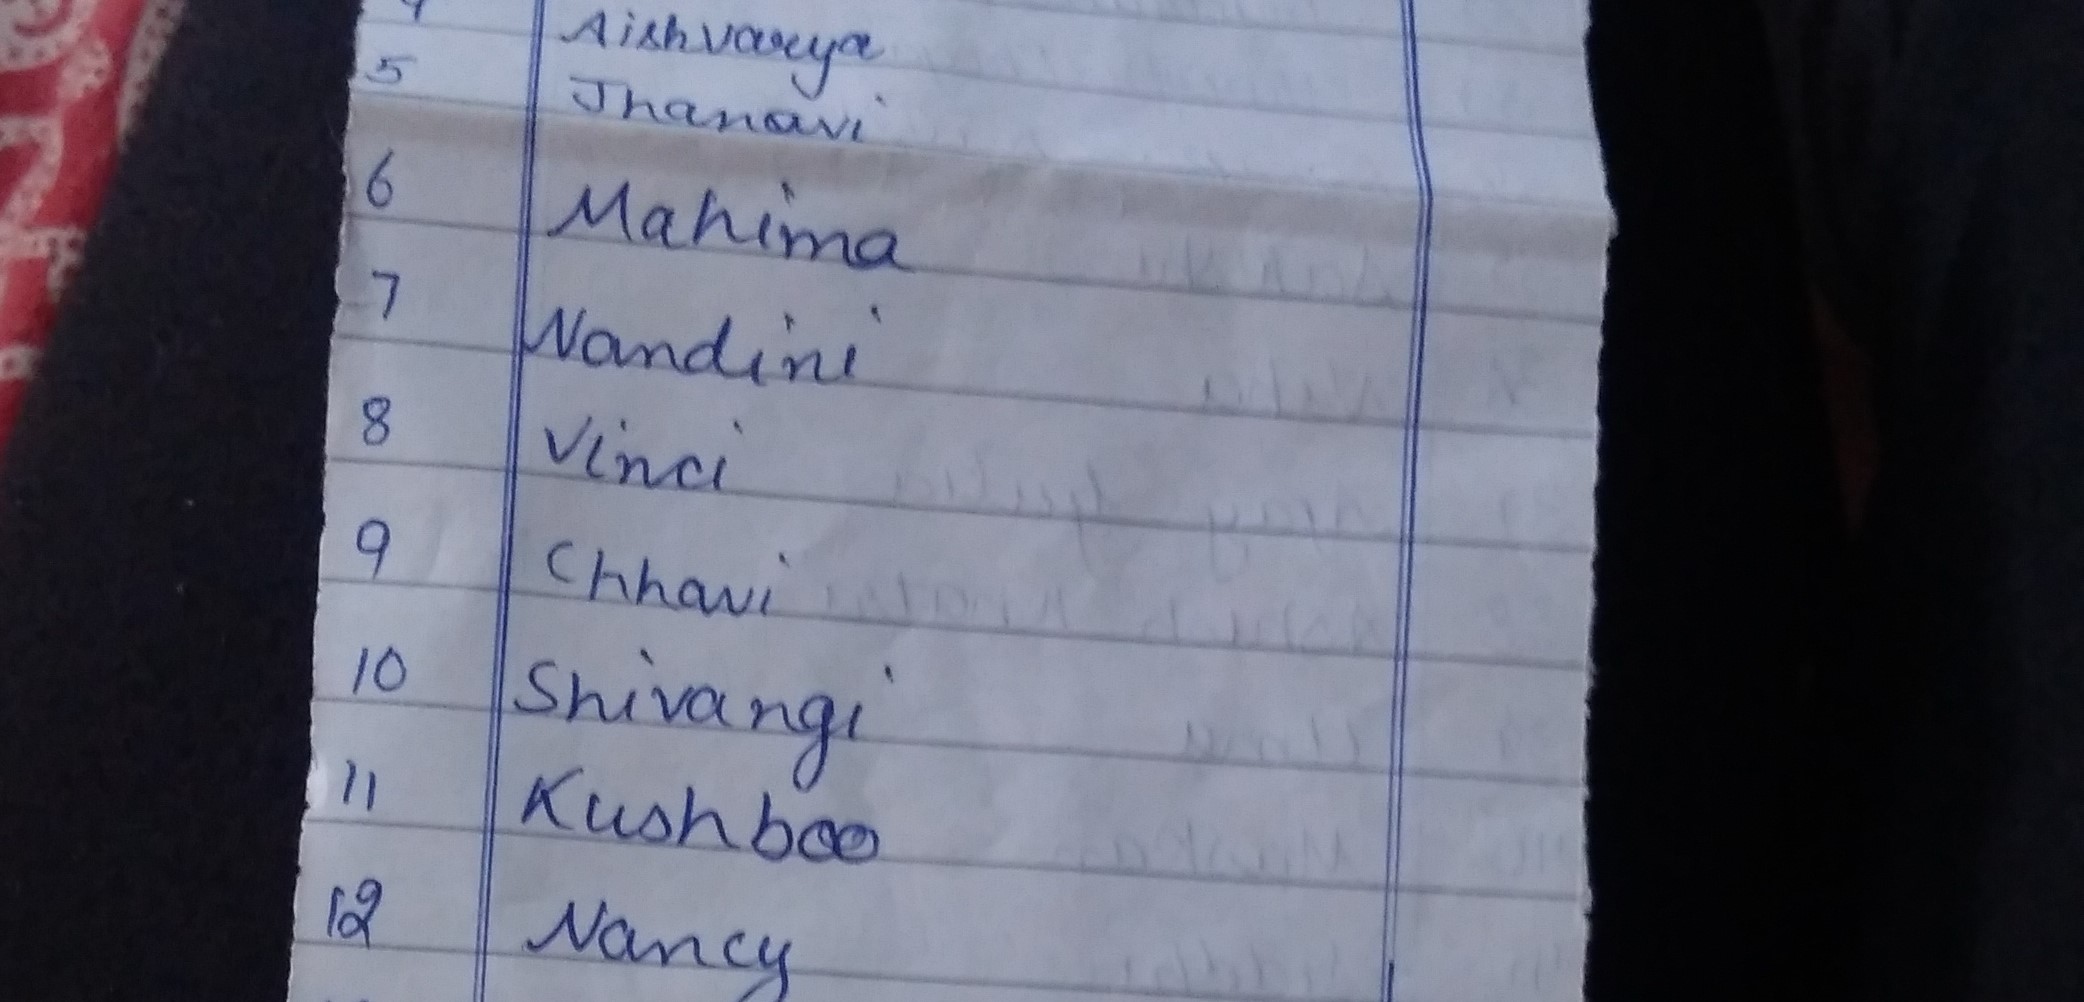 4 Aishvarya
5 Jhanavi
6 Mahima
7 Nandini
8 Vinci
9 Chhavi
10 Shivangi
11 Kushboo
12 Nancy